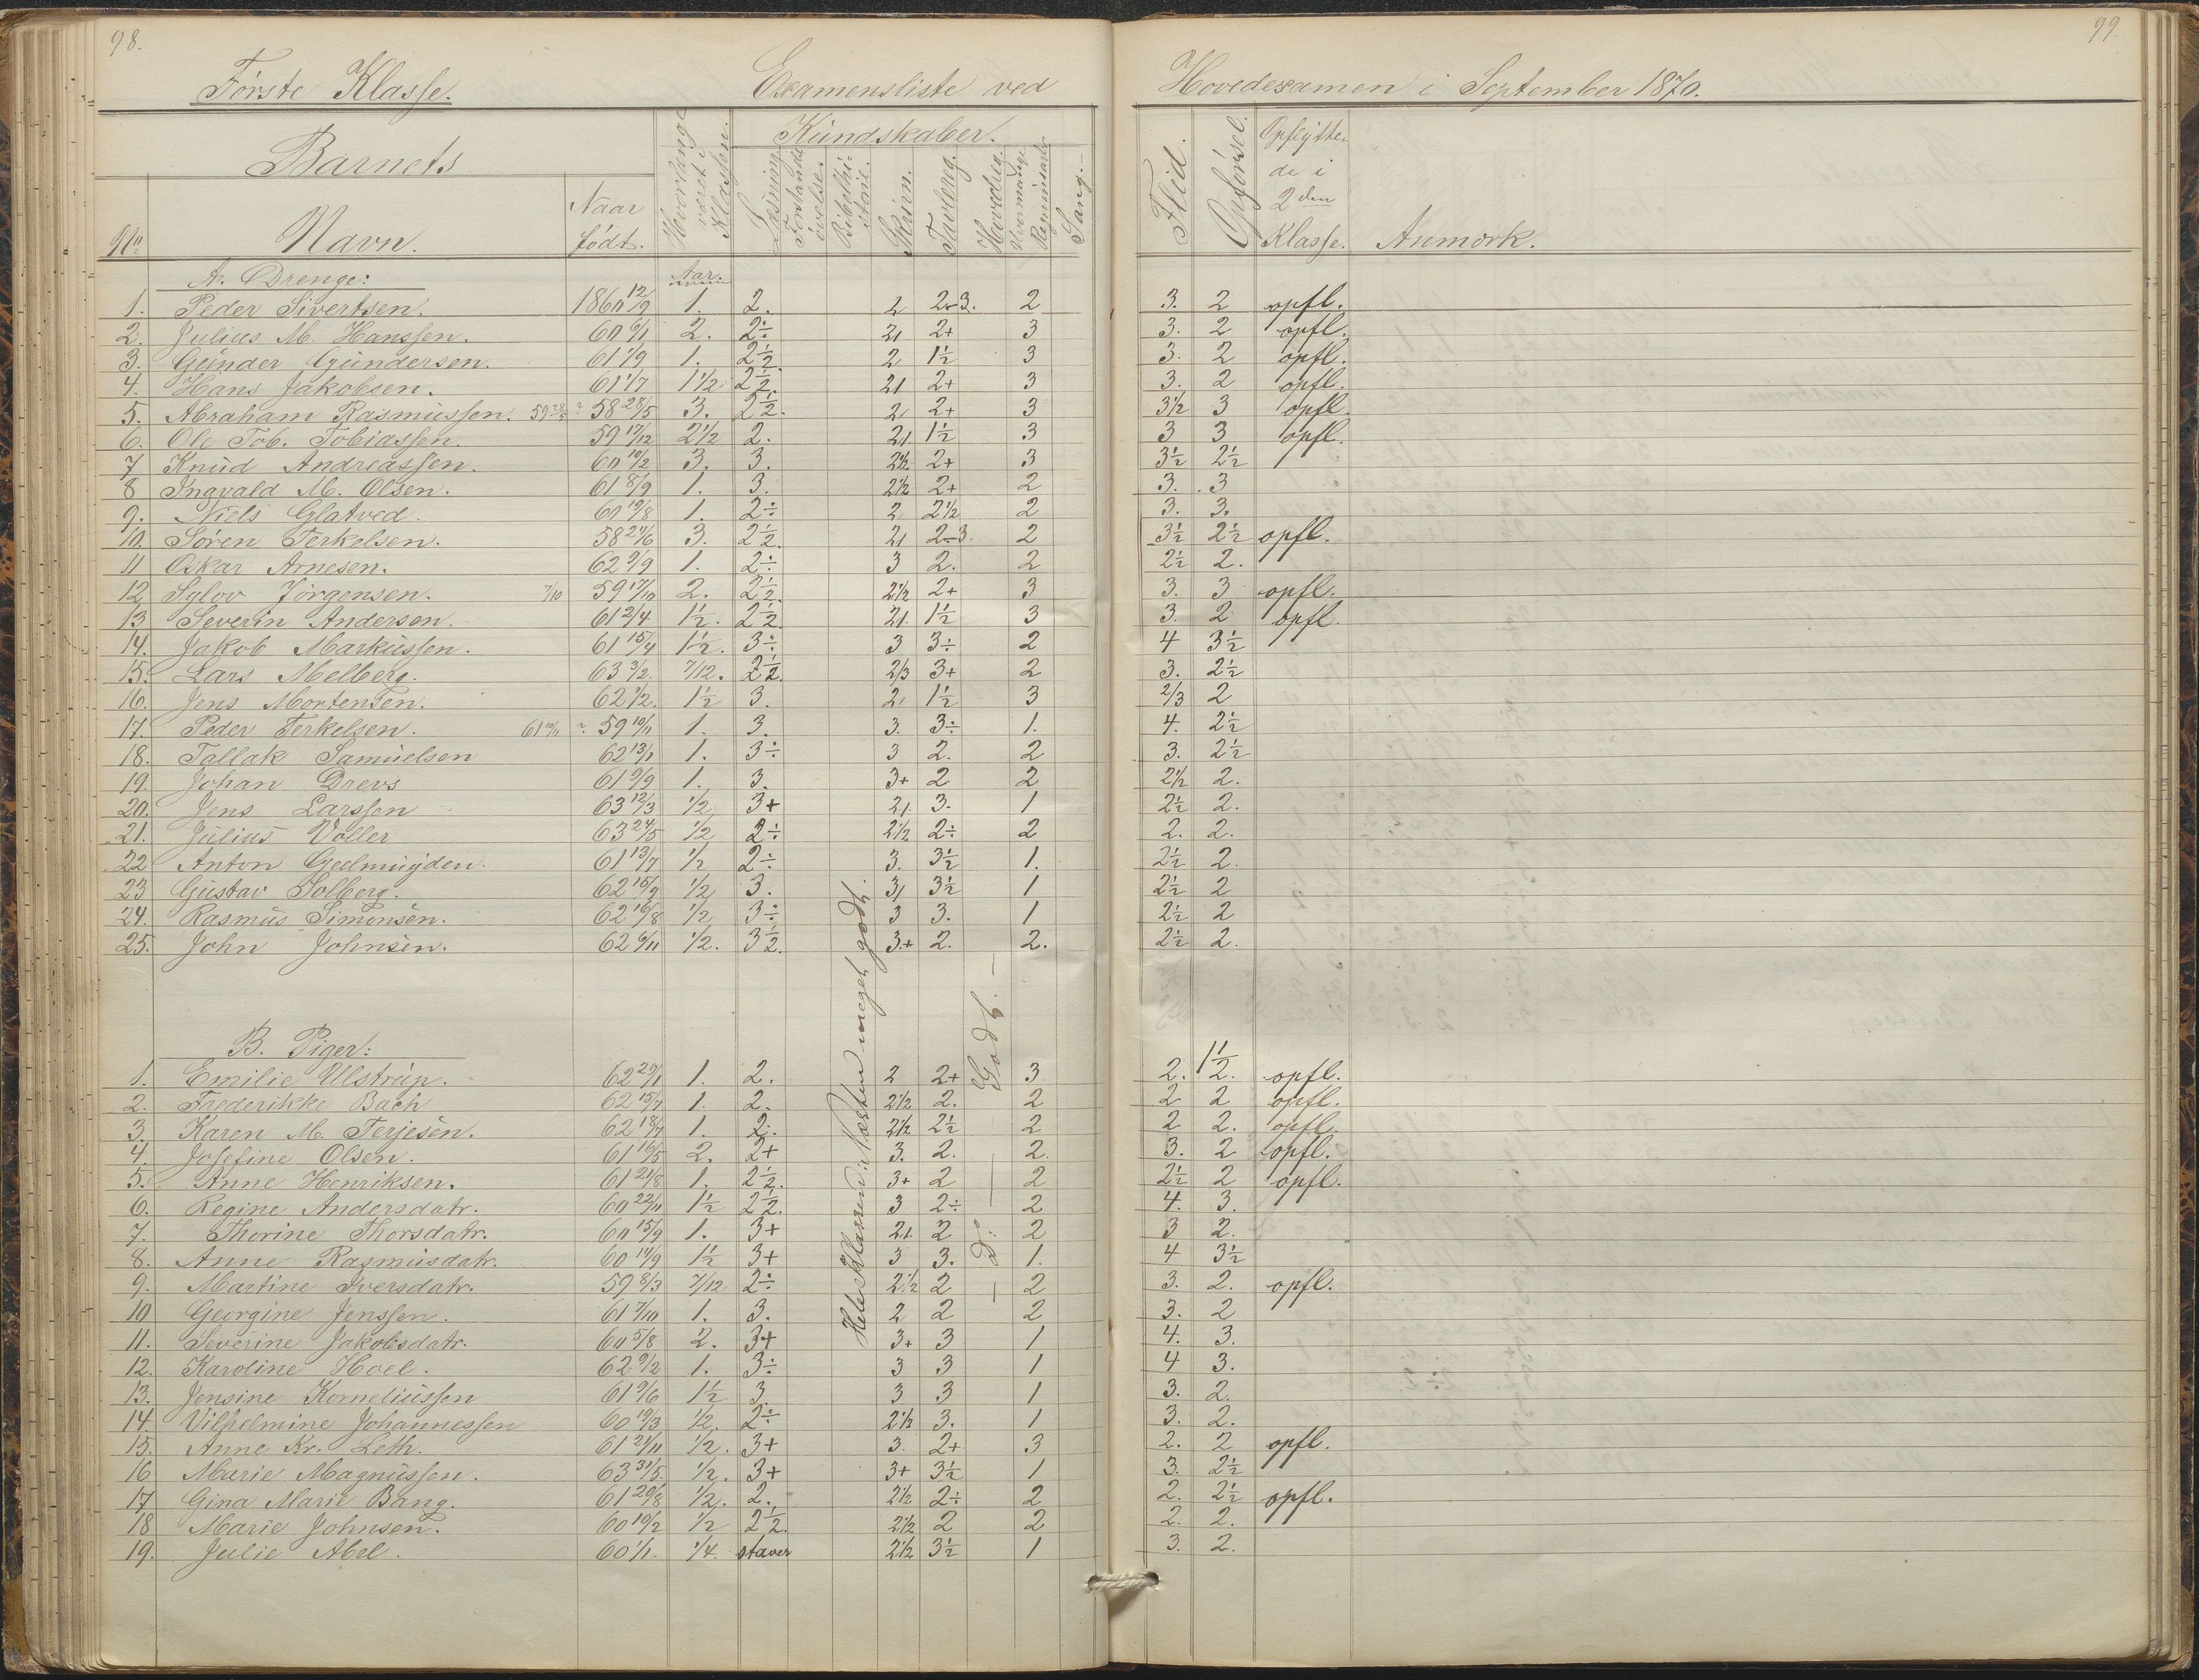 98.
99.
Første Klasse. Examensliste ved Hovedexamen i September 1870.
Barnets
No
Navn.
Naar født.
Hvorlænge været i Klassen.
Kundskaber.
Læsning.
Forstandsøvelse.
Bibelhistorie.
Skrivn.
Tavlereg.
Hovedreg.
Hvormange Regningsarter
Sang.
Flid.
Opførsel.
Opflyttede i 2den Klasse.
Anmærk.
A. Drenge:
Aar.
1. Peder Sivertsen. 1860 12/9 1. 2. 2 2-3. 2 3. 2 opfl.
2. Julius M. Hanssen. 60 6/11 2. 2÷ 21 2+ 3 3. 2 opfl.
3. Gunder Gundersen. 61 1/9 1. 2½ 2 1½ 3 3. 2 opfl.
4. Hans Jakobsen. 61 1/7 1½ 2½ 21 2+ 3 3. 2 opfl.
5. Abraham Rasmussen. 59 28/5 ? 58 28/5 3. 2½. 2 2+ 3 3½ 3 opfl.
6. Ole Tob. Tobiassen. 59 17/12 2½ 2. 21. 1½ 3 3 3 opfl.
7 Knud Andreassen. 60 10/2 3. 3. 2½ 2+ 3 3½ 2½
8 Ingvald M. Olsen. 61 8/9 1. 3. 2½ 2+ 2 3. 3
9. Niels Glatved. 60 19/8 1. 2÷ 2 2½ 2 3. 3.
10. Søren Terkelsen. 58 24/6 3. 2½. 21 2-3. 2 3½ 2½ opfl.
11 Oskar Arnesen. 62 9/9 1. 2÷ 3 2. 2 2½ 2.
12 Sylov Jørgensen. 7/10 59 17/10 2. 2½ 2½ 2+ 3 3. 3 opfl.
13 Severin Andersen. 61 2/4 1½. 2½ 21. 1½ 3 3. 2 opfl.
14. Jakob Markussen. 61 15/4 1½. 3÷ 3 3÷ 2 4 3½
15. Lars Melberg. 63 3/2. 7/12. 2½. 2/3 3+ 2 3. 2½
16. Jens Mortensen. 62 1/2. 1½ 3. 2, 1½ 3 2/3 2
17. Peder Terkelsen. 61 10/11 ? 59 10/11 1. 3. 3. 3÷ 1. 4. 2½
18. Tallak Samuelsen 62 13/1 1. 3÷ 3 2. 2 3. 2½
19. Johan Drevs 61 9/9 1. 3. 3+ 2 2 2½ 2.
20. Jens Larssen 63 12/3 ½ 3+ 21. 3. 1 2½ 2.
21. Julius Voller 63 24/5 ½ 2÷ 2½ 2÷ 2 2. 2.
22 Anton Geelmuyden. 61 13/7 ½ 2÷ 3. 3½ 1. 2½ 2.
23 Gustav Solberg. 62 15/9 ½ 3. 31 3½ 1 2½ 2
24. Rasmus Simonsen. 62 16/8 ½ 3÷ 3 3. 1 2½ 2
25. John Johnsen. 62 6/11 ½. 3½. 3+ 2. 2. 2½ 2.
Hele Klassen næsten meget godt.
Godt. —
— do —
B. Piger:
1. Emilie Ulstrup. 62 29/1 1. 2. 2 2+ 3 2. 1½ 2. opfl.
2. Frederikke Bach 62 15/7 1. 2. 2½ 2. 2 2 2 opfl.
3. Karen M. Terjesen. 62 18/7 1. 2. 2½ 2½ 2 2 2. opfl.
4. Josefine Olsen. 61 16/5 2. 2+ 3. 2. 2. 3. 2 opfl.
5. Anne Henriksen. 61 21/8 1. 2½. 3+ 2 2 2½ 2 opfl.
6. Regine Andersdatr. 60 22/11 1½ 2½. 3 2÷ 2 4. 3.
7. Thorine Thorsdatr. 60 15/9 1. 3+ 21. 2 2 3 2.
8. Anne Rasmusdatr. 60 14/9 1½ 3+ 3 3. 1. 4 3½
9. Martine Iversdatr. 59 8/3 7/12 2÷ 2½ 2 2 3. 2. opfl.
10 Georgine Jenssen. 61 7/10 1. 3. 2 2 2 3. 2
11. Severine Jakobsdatr. 60 5/8 2. 3+ 3+ 3 1 4. 3.
12. Karoline Hoel. 62 9/2 1. 3÷ 3 3 1 4 3.
13. Jensine Korneliussen 61 9/6 1½ 3 3 3 1 3. 2.
14. Vilhelmine Johannessen 60 19/3 ½. 2÷ 2½ 3. 1 3. 2.
15. Anne Kr. Leth. 61 21/11 ½. 3+ 3. 2+ 3 2. 2 opfl.
16 Marie Magnussen. 63 31/5. ½. 3+ 3+ 3½ 1 3. 2½
17 Gina Marie Bang. 61 20/8 ½. 2. 2½ 2÷ 2 2. 2½ opfl.
18 Marie Johnsen. 60 10/2 ½ 2½. 2½ 2 2 2. 2.
19. Julie Abel. 60 1/1. ¼. staver 2½ 3½ 1 3. 2.